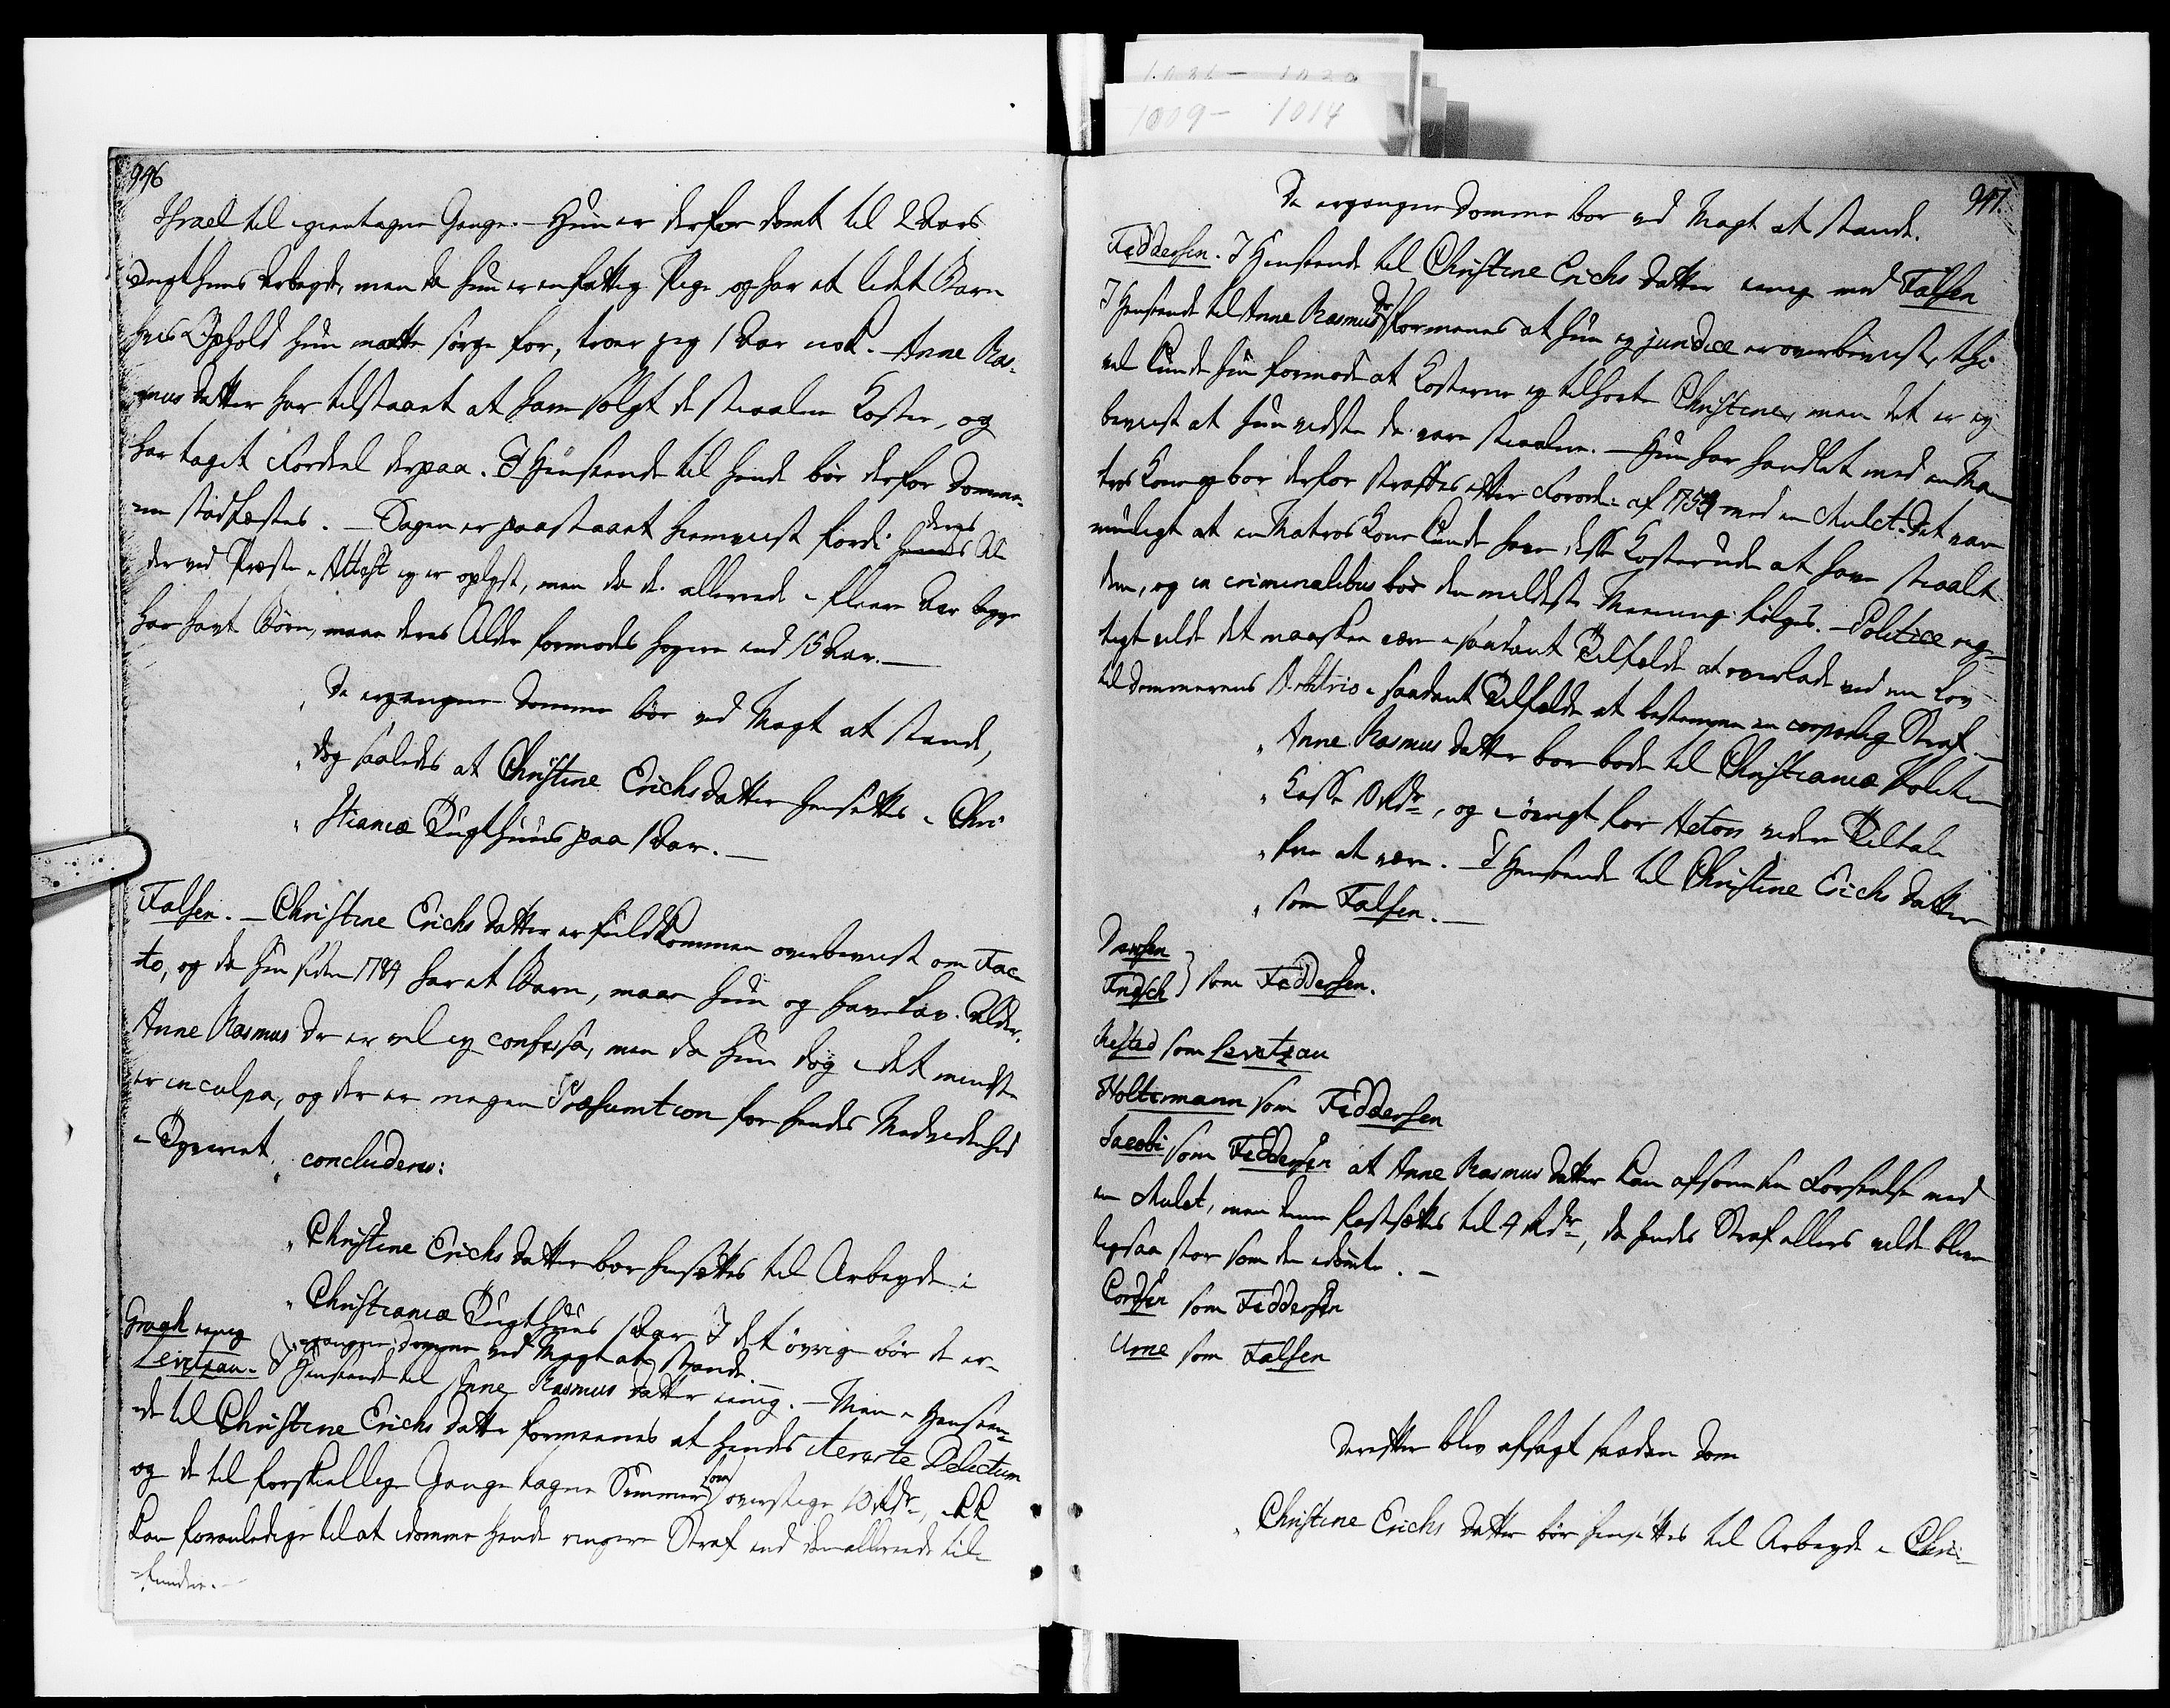 1009 - 1014
946
Israel til igientagne Gange. - Hun er derfor dömt til 2 Aars
Tugthuus Arbeyde, men da hun er en fattig Pige og har et lidet Barn
hvis Ophold hun maatte sörge for, troer jeg 1 Aar nok. - Anne Ras-
mus datter har tilstaaet at have solgt de stiaalne Koster, og
har taget Fordeel derpaa. I Henseende til hende bör derfor Domme-
ne stadfæstes. - Sagen er paastaaet hiemviist fordi hendes deres Al-
der ved Præste-Attest ey er oplyst, men da de allerede i fleere Aar begge
har havt Börn, maae deres Alder formodes höyere end 15 Aar. -
" De ergangne Domme bör ved Magt at stande,
" dog saaledes at Christine Erichsdatter hensættes i Chri
" stiania Tugthuus paa 1 Aar. -
Falsen. - Christine Erichs datter er fuldkommen overbeviist om Fac
to, og da hun siden 1784 har et Barn, maae hun og have Lav-Alder.
Anne Rasmus Dr er vel ey confessa, men da hun dog i det mindste
er in culpa, og der er nogen Præsumtion for hendes Medvidenhed
i Tyveriet, concluderes:
" Christine Erichs datter bör hensættes til Arbeyde i
" Christiania Tugthuus 1 Aar I det övrige bör de er-
" gangne Domme ved Magt at stande.
Gragh eenig
Levetzau. I Henseende til Anne Rasmus datter eenig. - Men i Henseen-
de til Christine Erichs datter formeenes at hendes itererte Delictum
og de til forskiellige Gange tagne Summer som overstige 10 Rdr, ikke
kan foranledige til at idömme hende ringere Straf end den allerede til-
fundne. -
947.
De ergangne Domme bör ved Magt at stande.
Feddersen. I Henseende til Christine Erichs datter eenig med Falsen
I Henseende til Anne Rasmus Dr formenes at hun ey juridice er overbeviist, thi
vel kunde hun formode at Kosterne ey tilhörte Christine, men det er ey
beviist at hun vidste de vare stiaalne. - Hun har handlet med en Ma-
tros Kone og bör derfor straffes efter Forord: af 1753 med en Mulct. Det var
mueligt at en Matros Kone kunde have disse Koster uden at have stiaalet
dem, og in criminalibus bör den mildeste Meening fölges. - Politice rig-
tigt vilde det maaskee være i saadant Tilfælde at overlade ved en Lov
til Dommerens Arbitrio i saadant Tilfælde at bestemme en corporlig Straf. -
" Anne Rasmus datter bör böde til Christiania Politie
" Kasse 10 Rdr, og i övrigt for Actors videre Tiltale
" frie at være. - I Henseende til Christine Erichs datter
" som Falsen. -
Fridsch } som Feddersen.
Mested som Levetzau
Holtermann som Feddersen
Jacobi som Feddersen at Anne Rasmus datter kan afsone sin Forseelse med
en Mulct, men denne fastsættes til 4 Rdr, da hendes Straf ellers vilde blive
ligesaa stor som den idömte. -
Cordsen som Feddersen
Urne som Falsen
Derefter blev afsagt saadan Dom
" Christine Erichs datter bör hensættes til Arbeyde i Chri-